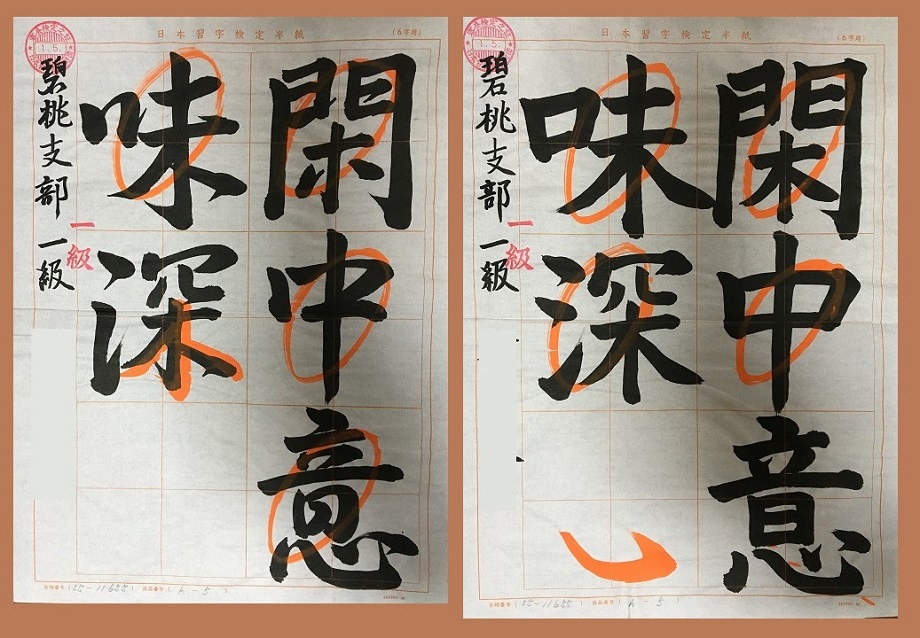 日本習字検定半紙
(6字用)
閑中意
味深
碧桃支部 一級
一級
1.5.
日本習字検定半紙
(6字用)
閑中意
味深
碧桃支部 一級
一級
1.5.